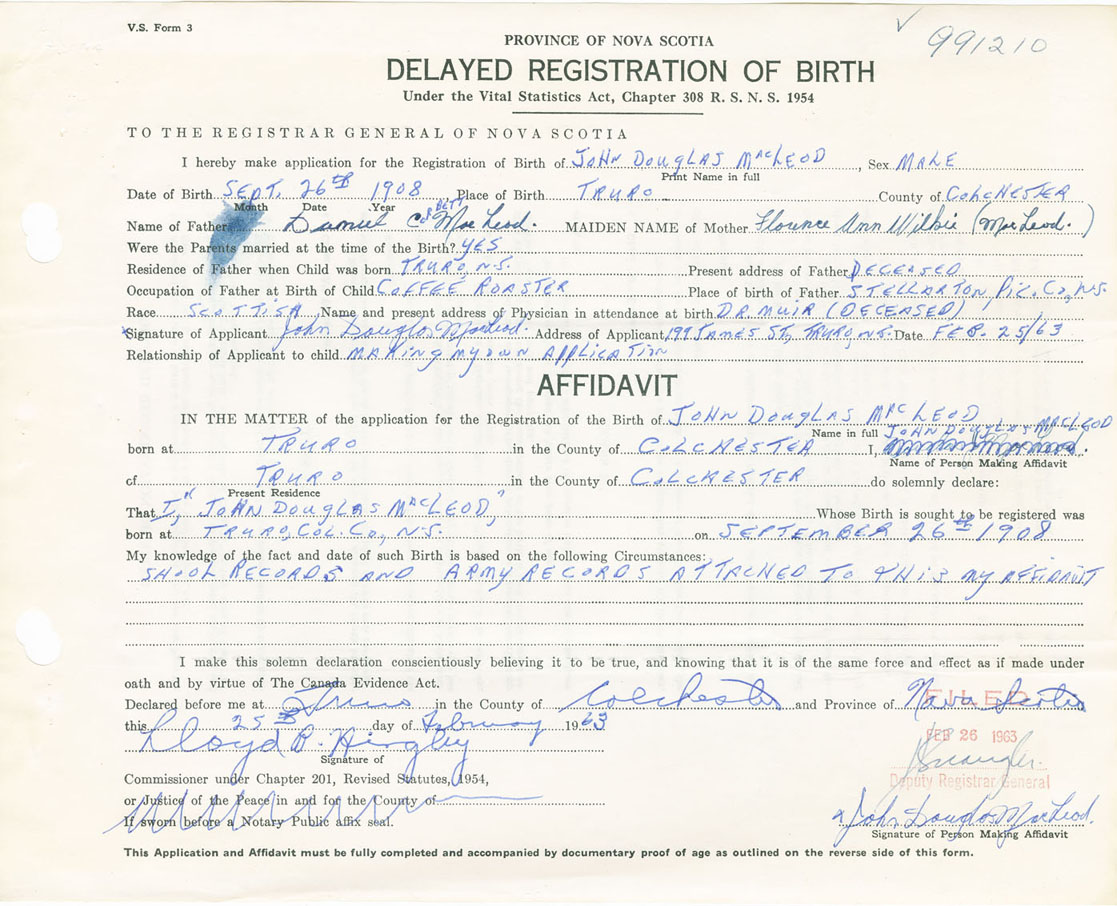 V.S. Form 3
991210
PROVINCE OF NOVA SCOTIA
DELAYED REGISTRATION OF BIRTH
Under the Vital Statistics Act, Chapter 308 R. S. N. S. 1954
TO THE REGISTRAR GENERAL OF NOVA SCOTIA
I hereby make application for the Registration of Birth of JOHN DOUGLAS MacLEOD, Sex MALE
Print Name in full
Date of Birth SEPT. 26th 1908 Place of Birth TRURO County of COLCHESTER
Month Date Year
Name of Father Daniel C. MacLeod. MAIDEN NAME of Mother Florence Ann Wilkie (MacLeod.)
Were the Parents married at the time of the Birth? YES
Residence of Father when Child was born TRURO, N.S. Present address of Father DECEASED
Occupation of Father at Birth of Child COFFEE ROASTER Place of birth of Father STELLARTON, Pic. Co, N.S.
Race SCOTTISH Name and present address of Physician in attendance at birth DR. MUIR (DECEASED)
Signature of Applicant John Douglas MacLeod. Address of Applicant 199 JAMES ST, TRURO, N.S. Date FEB. 25/63
Relationship of Applicant to child MAKING MY OWN APPLICATION
AFFIDAVIT
IN THE MATTER of the application for the Registration of the Birth of JOHN DOUGLAS MAC LEOD
Name in full JOHN DOUGLAS MACLEOD
born at TRURO in the County of COLCHESTER I,
Name of Person Making Affidavit
of TRURO in the County of COLCHESTER do solemnly declare:
Present Residence
That I, "JOHN DOUGLAS MACLEOD," Whose Birth is sought to be registered was
born at TRURO, COL. CO, N.S. on SEPTEMBER 26th 1908
My knowledge of the fact and date of such Birth is based on the following Circumstances:
SHOOL RECORDS AND ARMY RECORDS ATTACHED TO THIS MY AFFIDAVIT
I make this solemn declaration conscientiously believing it to be true, and knowing that it is of the same force and effect as if made under
oath and by virtue of The Canada Evidence Act.
Declared before me at Truro in the County of Colchester and Province of Nova Scotia
FILED
this 25th day of February 1963
FEB 26 1963
Lloyd B.
Signature of
Deputy Registrar General
Commissioner under Chapter 201, Revised Statutes, 1954,
or Justice of the Peace in and for the County of
If sworn before a Notary Public affix seal.
John Douglas MacLeod.
Signature of Person Making Affidavit
This Application and Affidavit must be fully completed and accompanied by documentary proof of age as outlined on the reverse side of this form.